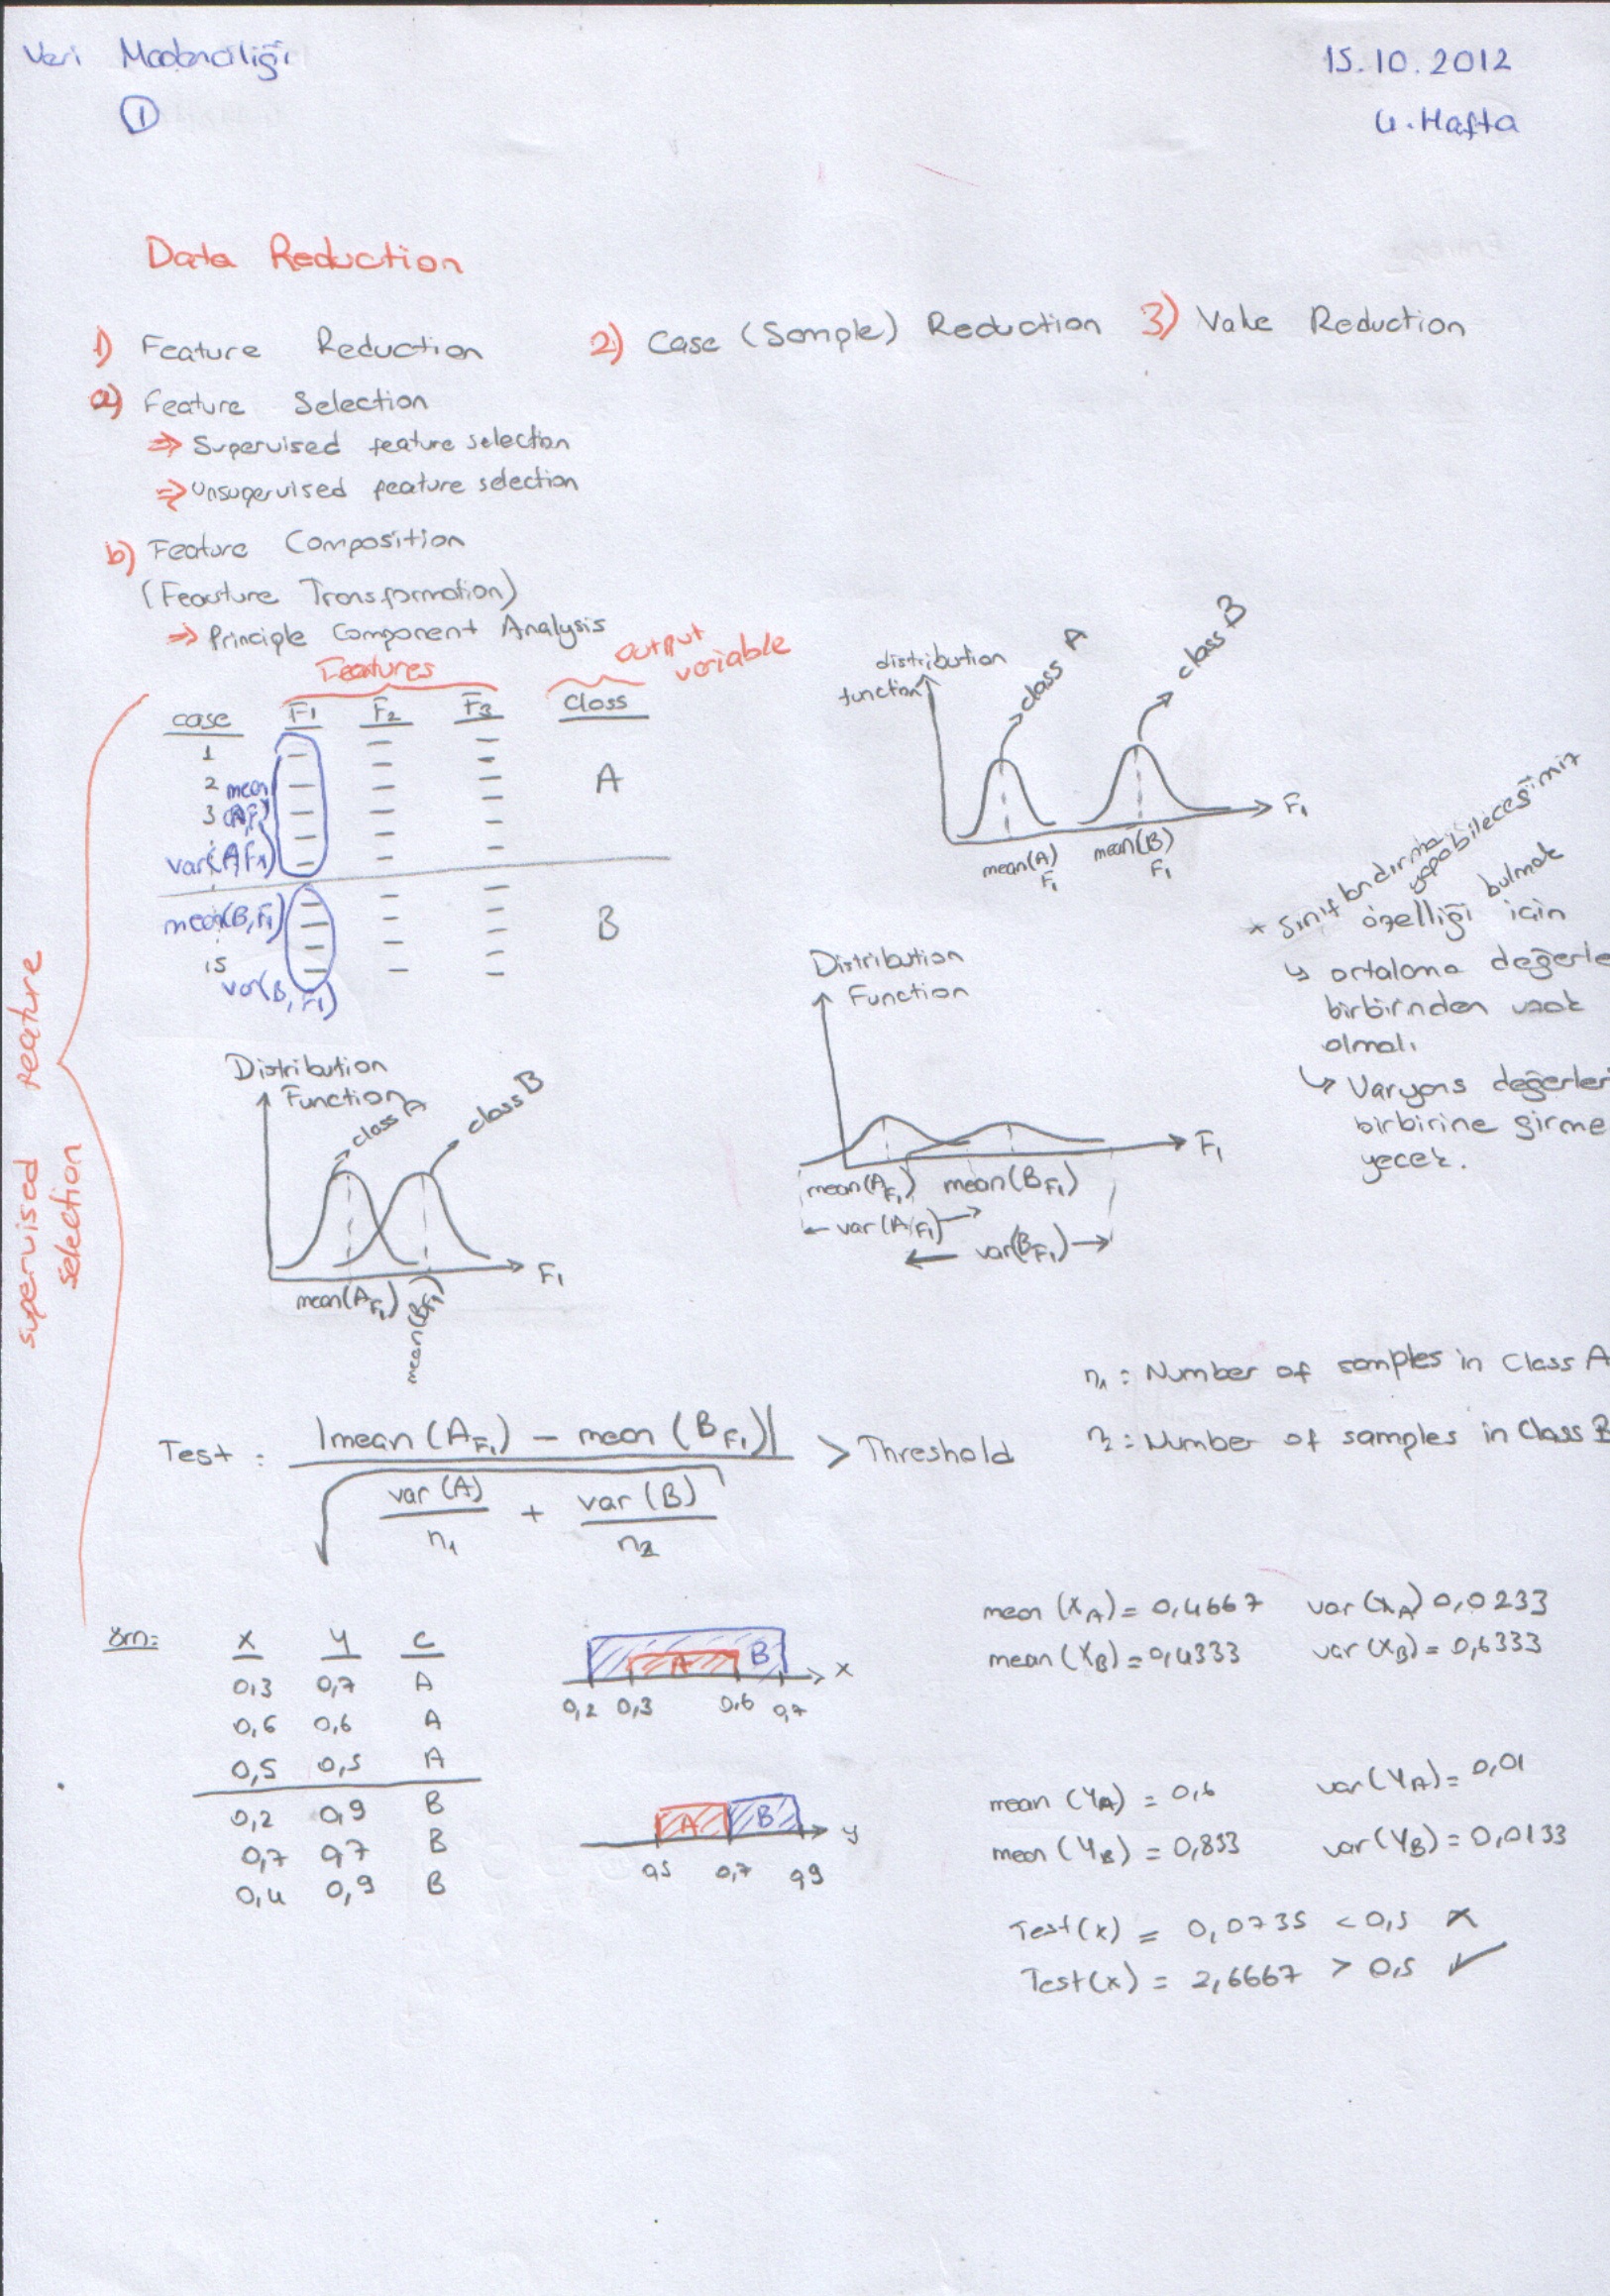 Veri Madenciliği
1
15.10.2012
4.Hafta
Data Reduction
1) Feature Reduction 2) Case (Sample) Reduction 3) Value Reduction
a) Feature Selection
⇒ Supervised feature selection
⇒ Unsupervised feature selection
b) Feature Composition
(Feature Transformation)
⇒ Principle Component Analysis
supervised feature
selection
Features
output
variable
case F1 F2 F3 class
1
2
3
15
mean
(A,F1)
var(A,F1)
A
mean(B,F1)
var(B,F1)
B
distribution
function
class A
class B
F1
mean(A)
F1
mean(B)
F1
* sınıflandırma yapabileceğimiz
özelliği bulmak için
↳ ortalama değerle
birbirinden uzak
olmalı
↳ Varyans değerler
birbirine girme
yecek.
Distribution
Function
class A
class B
F1
mean(A F1)
mean(B F1)
Distribution
Function
F1
mean(A F1) mean(B F1)
← var(A F1) →
← var(B F1) →
Test : |mean(A F1) - mean(B F1)| > Threshold
√ var(A) + var(B)
n1 n2
n1 : Number of samples in Class A
n2 : Number of samples in Class B
Örn:
X Y C
0,3 0,7 A
0,6 0,6 A
0,5 0,5 A
0,2 0,9 B
0,7 0,7 B
0,4 0,9 B
A B x
0,2 0,3 0,6 0,7
A B y
0,5 0,7 0,9
mean (XA) = 0,4667 var (XA) 0,0233
mean (XB) = 0,4333 var (XB) = 0,6333
mean (YA) = 0,6 var (YA) = 0,01
mean (YB) = 0,833 var (YB) = 0,0133
Test(x) = 0,0735 < 0,5 X
Test(x) = 2,6667 > 0,5 ✓